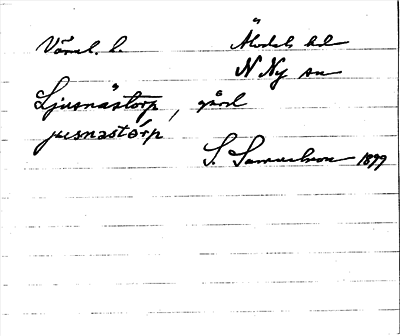 Värml. l.
Älvdals hd
N Ny sn
Ljusnästorp, gård
jusnastórp
S. Samuelsson 1899